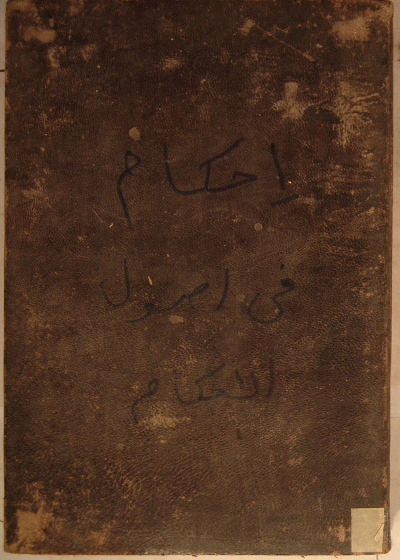 إحكام
في اصول
الاحكام